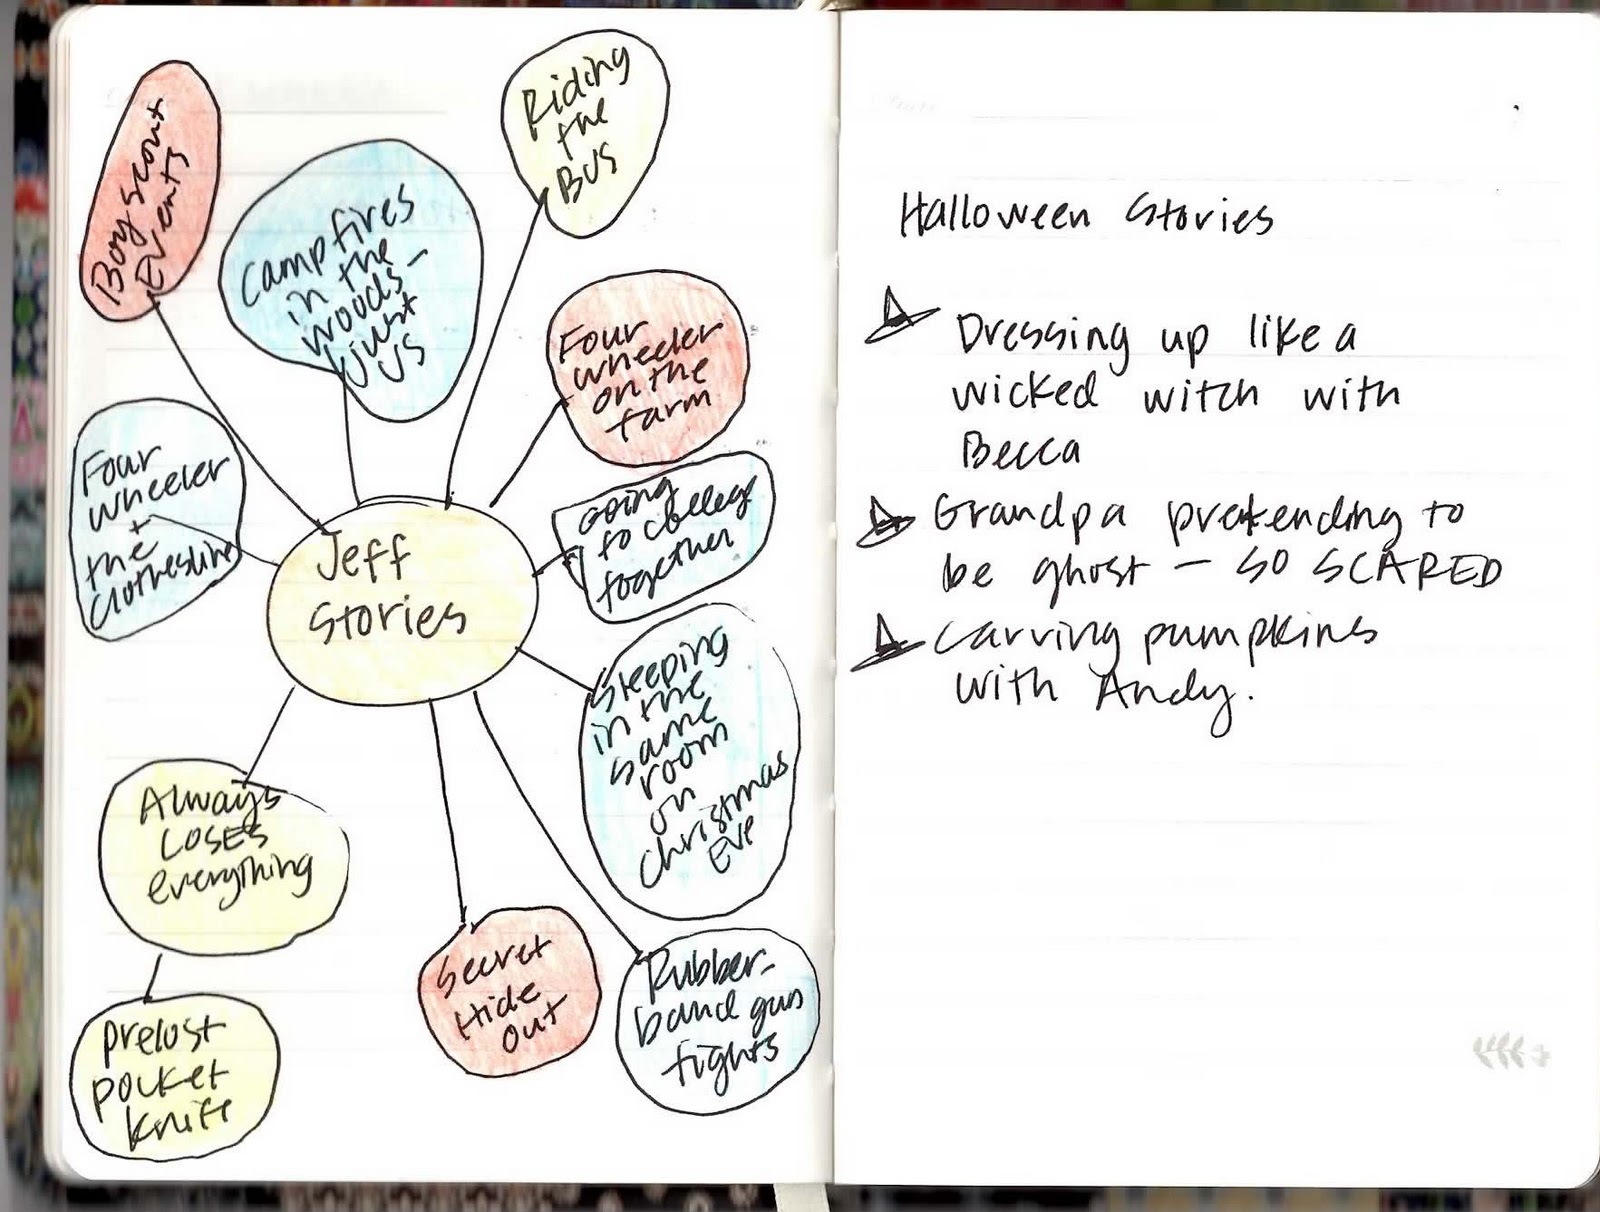 Boy scout
Events
Campfires
in the
woods –
just
us
Riding
the
BUS
Four
wheeler
on the
farm
Four
wheeler
+
the
clothesline
Jeff
Stories
Going
to college
together
Sleeping
in the
same
room
on
christmas
Eve
Always
LOSES
everything
Prelost
pocket
knife
Secret
Hide
out
Rubber-
band gun
fights
Halloween Stories
Dressing up like a
wicked witch with
Becca
Grandpa pretending to
be ghost – SO SCARED
Carving pumpkins
with Andy.